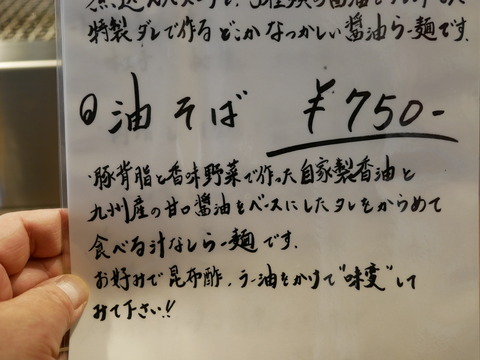 特製ダレで作るどこかなつかしい醤油らー麺です。
油そば ¥750-
・豚背脂と香味野菜で作った自家製香油と
九州産の甘口醤油をベースにしたタレをからめて
食べる汁なしらー麺です。
お好みで昆布酢、ラー油をかけて"味変"して
みて下さい!!